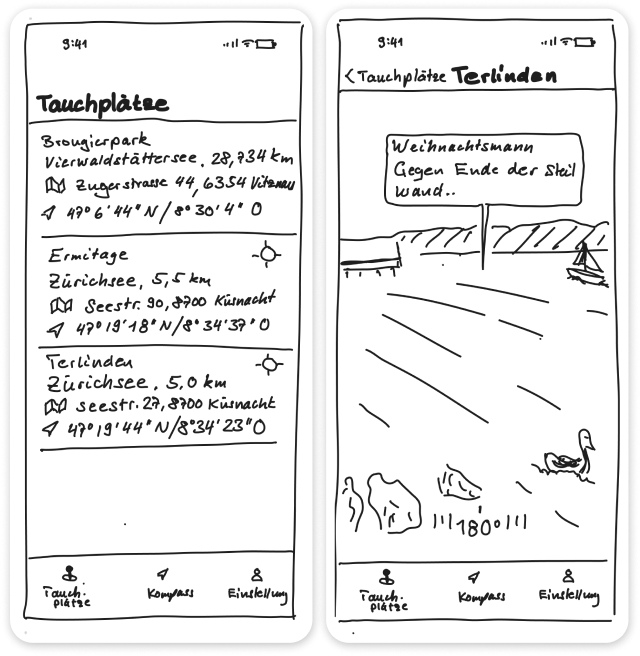 9:41
Tauchplätze
Brougierpark
Vierwaldstättersee, 28,734 km
Zugerstrasse 44, 6354 Vitznau
47° 6' 44" N / 8° 30' 4" O
Ermitage
Zürichsee, 5,5 km
Seestr. 90, 8700 Küsnacht
47° 19' 18" N / 8° 34' 37" O
Terlinden
Zürichsee, 5,0 km
Seestr. 27, 8700 Küsnacht
47° 19' 44" N / 8° 34' 23" O
Tauch-
plätze
Kompass
Einstellung
9:41
< Tauchplätze Terlinden
Weihnachtsmann
Gegen Ende der Steil
wand..
180°
Tauch-
plätze
Kompass
Einstellung